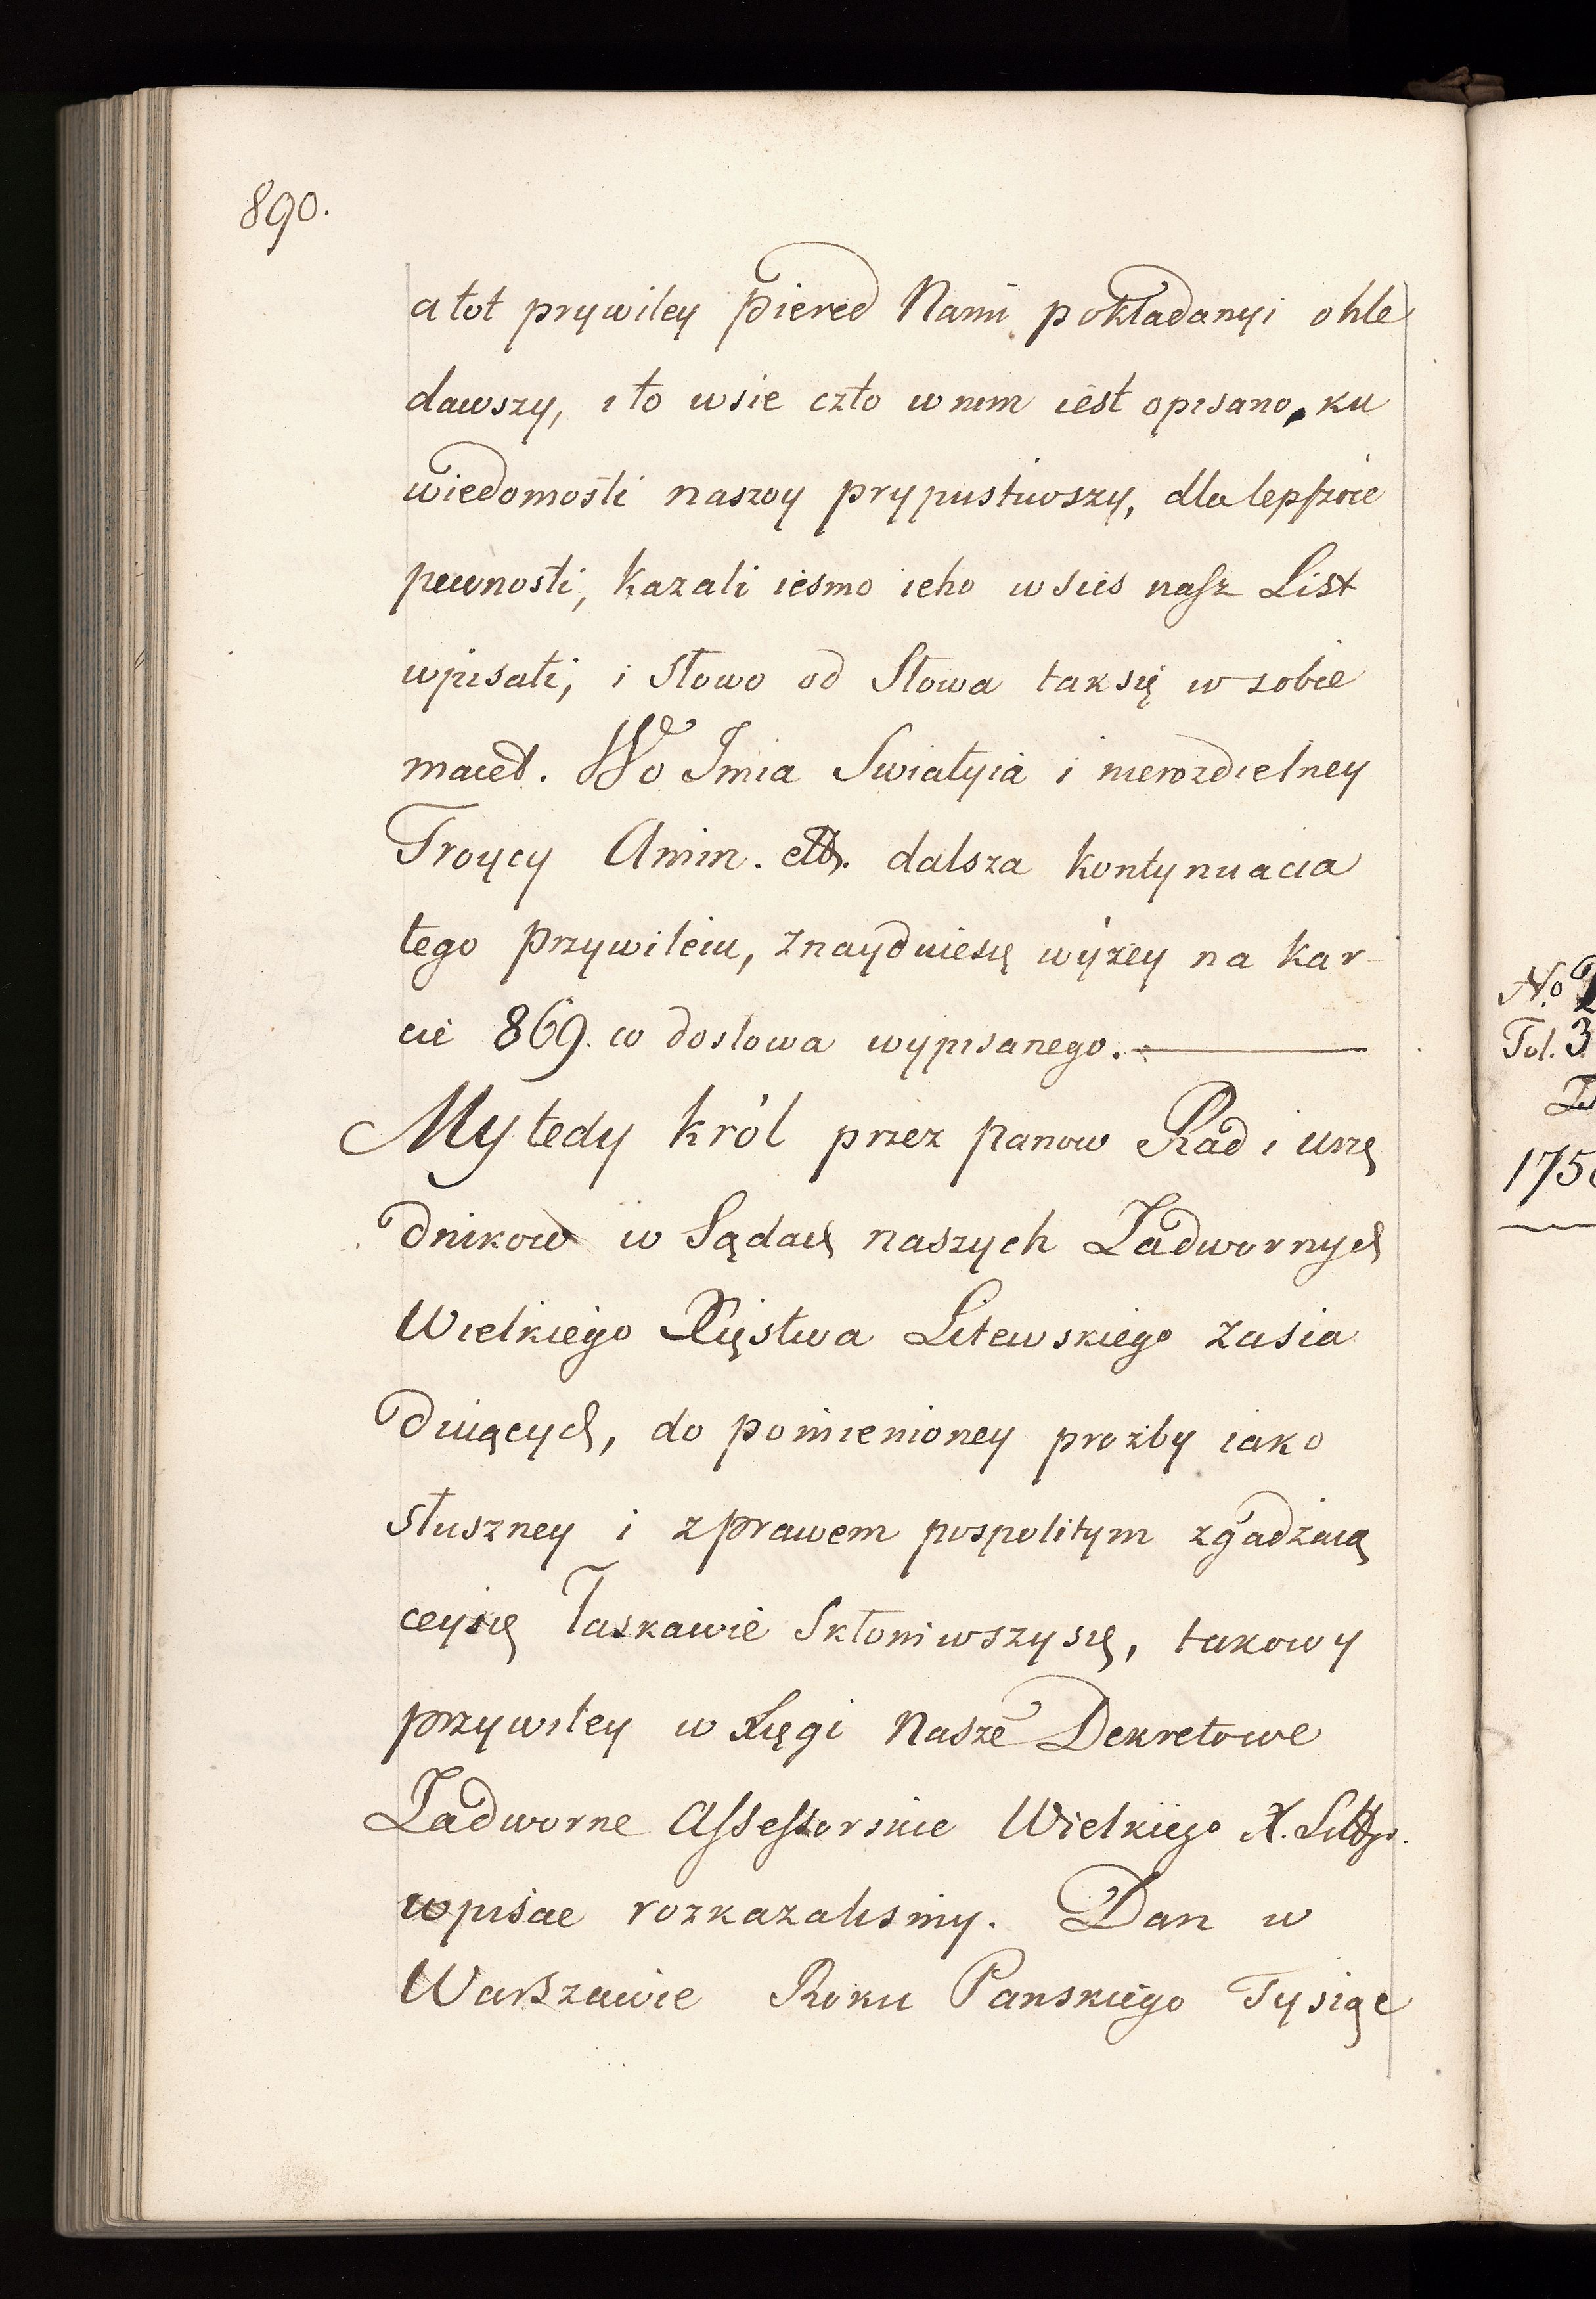 890.
a tot prywiley piered Nami pokładanyi ohle
dawszy, i to wsie czto w nim iest opisano, ku
wiedomosti naszoy prypustiwszy, dla lepszoie
pewnosti, kazali iesmo ieho w sies nasz List
wpisati, i słowo od słowa tak się w sobie
maiet. Wo Imia Swiatyia i nierozdielney
Troycy Amin. etc. dalsza kontynuacia
tego przywileiu, znayduiesię wyżey na kar-
cie 869. co do słowa wypisanego.
My tedy król przez panow Rad i urzę
dnikow w Sądach naszych Zadwornych
Wielkiego Xięstwa Litewskiego zasia
duiących, do pomienioney prozby iako
słuszney i z prawem pospolitym zgadzaią
ceysię łaskawie skłoniwszysię, takowy
przywiley w Xięgi Nasze Dekretowe
Zadworne Assessorskie Wielkiego X. Littgo.
wpisac rozkazalismy. Dan w
Warszawie Roku Panskiego Tysiąc
No
Fol. 3
175